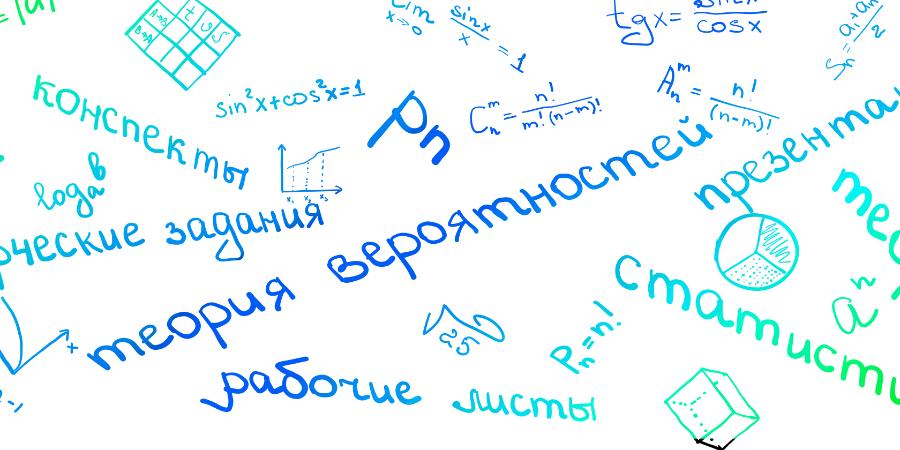 lim
x→0
sinx/x = 1
tg x = sinx/cosx
Sₙ = (a₁+aₙ)/2
конспекты
sin²x+cos²x=1
Pₙ
Cₙᵐ = n!/(m!(n-m)!)
Aₙᵐ = n!/(n-m)!
презента
x₁ x₂ x₃
ческие задания
теория вероятностей
aⁿ
статисти
x
25
Pₙ=n!
рабочие листы